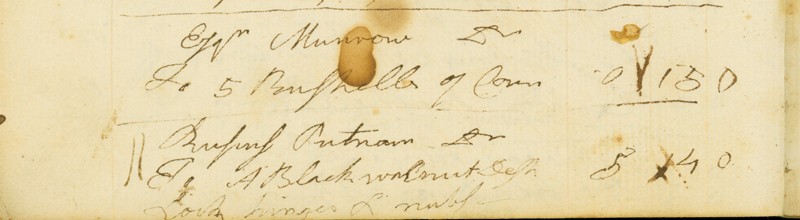 Esqr Munrow Dr
To 5 Bushells of Corn 0 15 0
Rufus Putnam Dr
To A Black walnut Desk 5 14 0
Lock hinges &